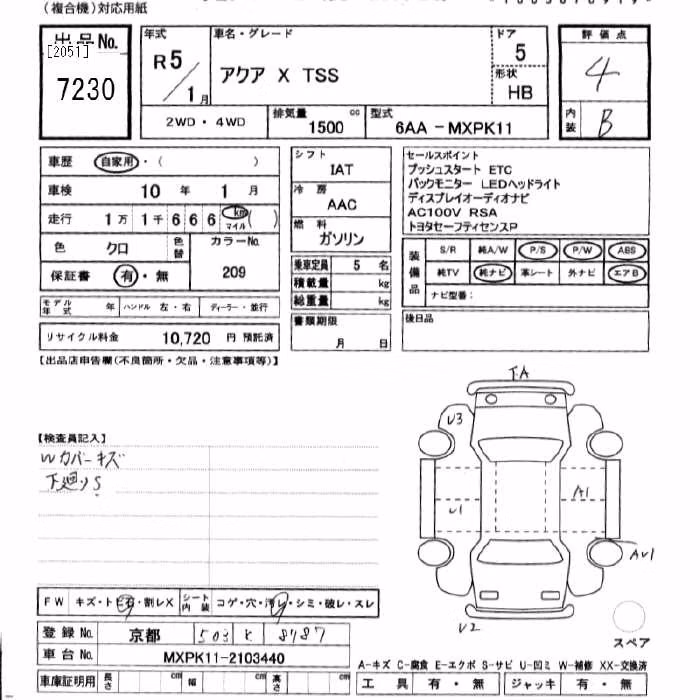 (複合機)対応用紙
出品No.
[2051]
7230
年式
R5/1月
車名・グレード
アクア X TSS
ドア
5
形状
HB
評価点
4
内装
B
2WD・4WD
排気量
1500 cc
型式
6AA -MXPK11
車歴 自家用・( )
車検 10 年 1 月
走行 1万 1千 6 6 6 km マイル ( )
色 クロ 色替 カラーNo.
保証書 有・無 209
モデル年式 年 ハンドル 左・右 ディーラー・並行
リサイクル料金 10,720 円 預託済
シフト
IAT
冷房
AAC
燃料
ガソリン
乗車定員 5 名
積載量 kg
総重量 kg
書類期限
月 日
セールスポイント
プッシュスタート ETC
バックモニター LEDヘッドライト
ディスプレイオーディオナビ
AC100V RSA
トヨタセーフティセンスP
装備品
S/R 純A/W P/S P/W ABS
純TV 純ナビ 革シート 外ナビ エアB
ナビ型番:
後日品
【出品店申告欄(不良箇所・欠品・注意事項等)】
【検査員記入】
Wカバーキズ
下廻りS
F.A
U3
U1
A1
AU1
U2
スペア
FW キズ・トビ石・割レX シート内装 コゲ・穴・汚レ・シミ・破レ・スレ
登録No. 京都 503 8787
車台No. MXPK11-2103440
車庫証明用 長さ cm 幅 cm 高さ cm
A-キズ C-腐食 E-エクボ S-サビ U-凹ミ W-補修 XX-交換済
工具 有・無 ジャッキ 有・無